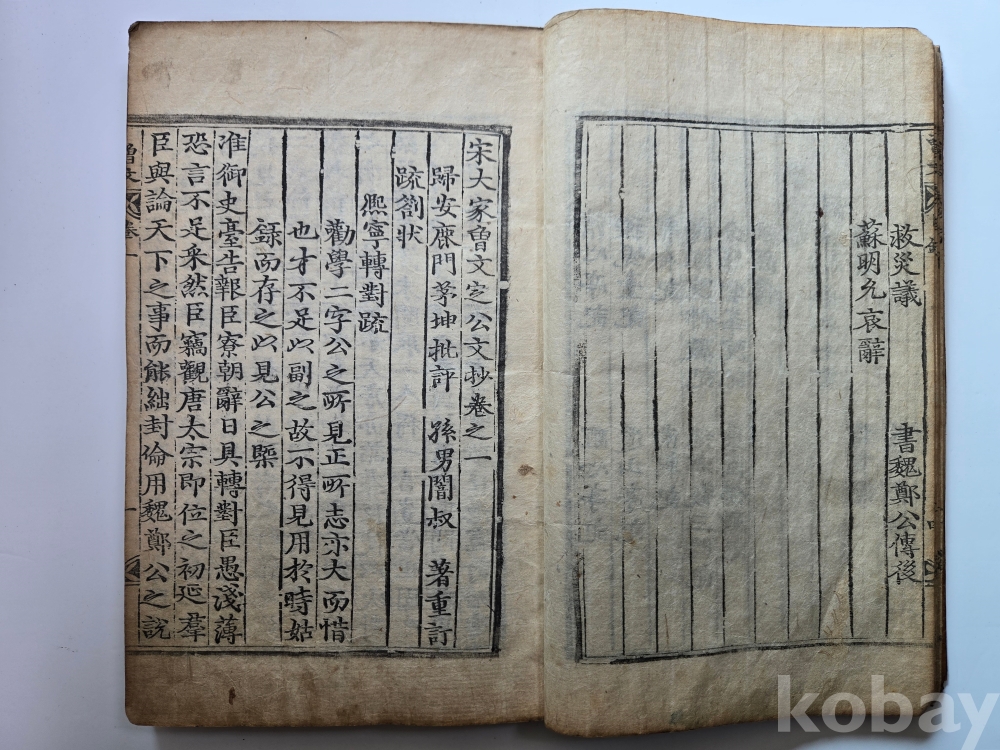 救災議 書魏鄭公傳後
蘇明允哀辭
宋大家曾文定公文抄卷之一
歸安鹿門茅坤批評 孫男闇叔 著重訂
疏劄狀
熙寧轉對疏
勸學二字公之所見正所志亦大而惜
也才不足以副之故不得見用於時姑
錄而存之以見公之槩
准御史臺告報臣寮朝辭日具轉對臣愚淺薄
恐言不足采然臣竊觀唐太宗即位之初延羣
臣與論天下之事而能絀封倫用魏鄭公之說
曾文 卷一 一
kobay